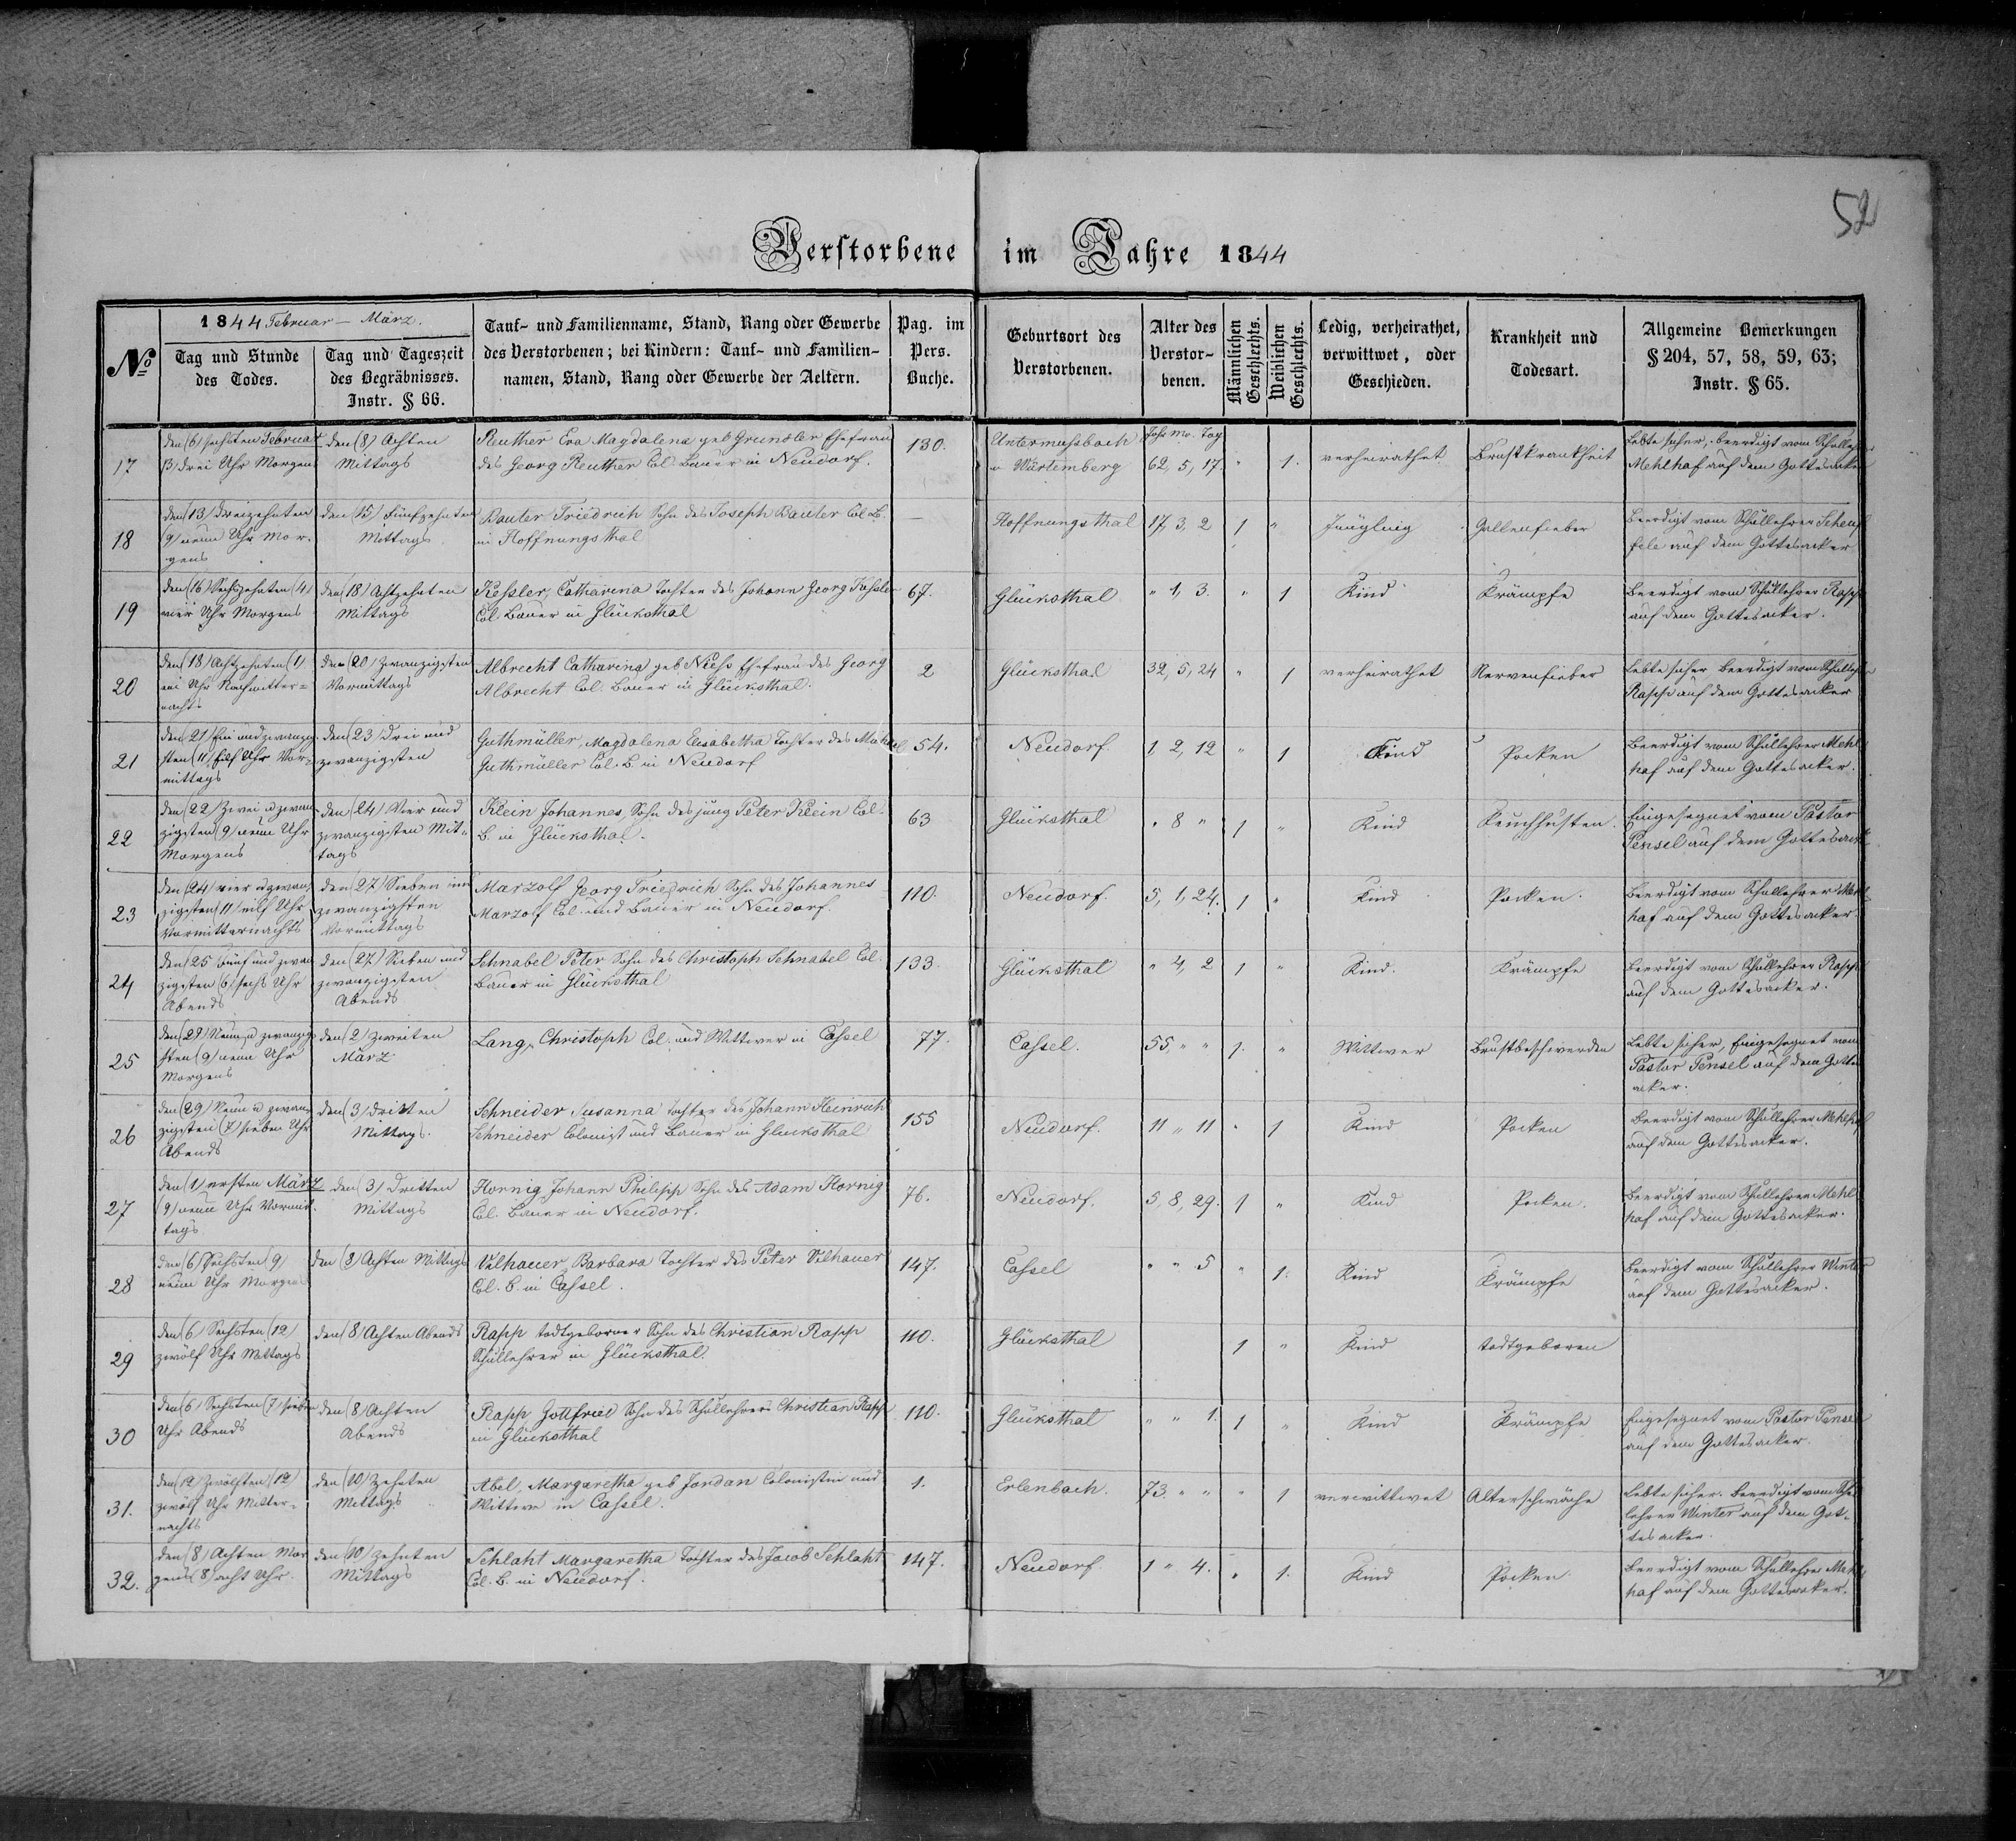 52
Verstorbene im Jahre 1844
1844 Februar — März.
No
Tag und Stunde des Todes.
Tag und Tageszeit des Begräbnisses. Instr. § 66.
Tauf- und Familienname, Stand, Rang oder Gewerbe des Verstorbenen; bei Kindern: Tauf- und Familien-namen, Stand, Rang oder Gewerbe der Aeltern.
Pag. im Pers. Buche.
Geburtsort des Verstorbenen.
Alter des Verstor-benen.
Männlichen Geschlechts.
Weiblichen Geschlechts.
Ledig, verheirathet, verwittwet, oder Geschieden.
Krankheit und Todesart.
Allgemeine Bemerkungen § 204, 57, 58, 59, 63; Instr. § 65.
17
den (6) sechsten Februar
(3) drei Uhr Morgens
den (8) Achten
Mittags
Reuther Eva Magdalena geb Grundler Ehefrau
des Georg Reuther Col. Bauer in Neudorf.
130.
Würtemberg
Jahr Mo. Tag
62, 5, 17. " 1.
verheirathet
Brustkrankheit
Lebte sicher, beerdigt vom Schulleh
Mehlhaf auf dem Gottesacker
18
den (13) dreizehnten
(9) neun Uhr Mor-
gens
den (15) Fünfzehnten
Mittags
Bauter Friedrich Sohn des Joseph Bauter Col. B.
in Hoffnungsthal
—
Hoffnungsthal
17, 3, 2 1 "
Jüngling
Gallenfieber
Beerdigt vom Schullehrer Scheuf
fele auf dem Gottesacker
19
den (16) Sechzehnten (4)
vier Uhr Morgens
den (18) Achtzehnten
Mittags
Kessler, Catharina Tochter des Johann Georg Kessler
Col. Bauer in Glücksthal
67.
Glücksthal
" 1, 3. " 1
Kind
Krämpfe
Beerdigt vom Schullehrer Rapp
auf dem Gottesacker.
20
den (18) Achtzehnten (1)
ein Uhr Nachmitter=
nachts
den (20) zwanzigsten
Vormittags
Albrecht Catharina geb Niess Ehefrau des Georg
Albrecht Col. Bauer in Glücksthal.
2
Glücksthal
32, 5, 24 " 1
verheirathet
Nervenfieber
Lebte sicher beerdigt vom Schulleh
Rapp auf dem Gottesacker
21
den (21) Ein und zwanzig-
sten (11) eilf Uhr Vor-
mittags
den (23) Drei und
zwanzigsten
Guthmüller, Magdalena Elisabetha Tochter des Michael
Guthmüller Col. B. in Neudorf
54.
Neudorf.
1, 2, 12 " 1
Kind
Pocken
Beerdigt vom Schullehrer Mehl
haf auf dem Gottesacker.
22
den (22) Zwei u zwan
zigsten (9) neun Uhr
Morgens
den (24) Vier und
zwanzigsten Mit-
tags
Klein Johannes, Sohn des jung Peter Klein Col.
B. in Glücksthal.
63
Glücksthal
" 8 " 1 "
Kind
Keuchhusten.
Eingesegnet vom Pastor
Pensel auf dem Gottesack
23
den (24) vier u zwan
zigsten (11) eilf Uhr
Vormitternachts
den (27) Sieben und
zwanzigsten
Vormittags
Marzolf Georg Friedrich Sohn des Johannes
Marzolf Col. und Bauer in Neudorf
110.
Neudorf.
5, 1, 24. 1 "
Kind
Pocken.
Beerdigt vom Schullehrer Mehl
haf auf dem Gottesacker.
24
den (25 Fünf und zwan
zigsten (6) sechs Uhr
Abends
den (27) Sieben und
zwanzigsten
Abends
Schnabel Peter Sohn des Christoph Schnabel Col.
Bauer in Glücksthal
133.
Glücksthal
" 4, 2 1 "
Kind.
Krämpfe
Beerdigt vom Schullehrer Rapp
auf dem Gottesacker.
25
den (29) Neun u zwanzig
sten (9) neun Uhr
Morgens
den (2) zweiten
März
Lang, Christoph Col. und Wittwer in Cassel
77.
Cassel.
55, " " 1. "
Wittwer
Brustbeschwerden
Lebte sicher, Eingesegnet vom
Pastor Pensel auf dem Gottes
acker.
26
den (29) Neun u zwan
zigsten (7) sieben Uhr
Abends
den (3) dritten
Mittags.
Schneider Susanna Tochter des Johann Heinrich
Schneider Colonist und Bauer in Glucksthal
155
Neudorf.
11 " 11 " 1
Kind
Pocken
Beerdigt vom Schullehrer Mehlhaf
auf dem Gottesacker.
27
den (1) ersten März
(9) neun Uhr Vormit-
tags
den (3) Dritten
Mittags
Hornig, Johann Philipp Sohn des Adam Hornig
Col. Bauer in Neudorf.
76.
Neudorf.
5, 8, 29. 1 "
Kind
Pocken.
Beerdigt vom Schullehrer Mehl
haf auf dem Gottesacker.
28
den (6) Sechsten (9)
neun Uhr Morgens
den (8) Achten Mittags
Vilhauer, Barbara Tochter des Peter Vilhauer
Col. B. in Cassel.
147.
Cassel
" " 5 " 1.
Kind
Krämpfe
Beerdigt vom Schullehrer Winter
auf dem Gottesacker.
29
den (6) Sechsten (12)
zwölf Uhr Mittags
den (8) Achten Abends
Rapp todtgeborner Sohn des Christian Rapp
Schullehrer in Glücksthal.
110.
Glücksthal
1 "
Kind
todtgeboren
30
den (6) Sechsten (7) sieben
Uhr Abends
den (8) Achten
Abends
Rapp Gottfried Sohn des Schullehrers Christian Rapp
in Glucksthal
110.
Glücksthal
" " 1. 1 "
Kind
Krämpfe
Eingesegnet vom Pastor Pensel
auf dem Gottesacker.
31.
den (12) Zwölften (12)
zwölf Uhr Mitter-
nachts
den (10) Zehnten
Mittags
Abel, Margaretha geb Jordan Colonistin und
Wittwe in Cassel.
1.
Erlenbach.
73. " " " 1
verwittwet
Alterschwäche
Lebte sicher. Beerdigt vom Schul
lehrer Winter auf dem Got-
tesacker.
32.
den (8) Achten Mor
gends (8) acht Uhr.
den (10) Zehnten
Mittags
Schlaht Margaretha Tochter des Jacob Schlaht
Col. B. in Neudorf.
147.
Neudorf.
1 " 4. " 1.
Kind
Pocken.
Beerdigt vom Schullehrer Mehl
haf auf dem Gottesacker.